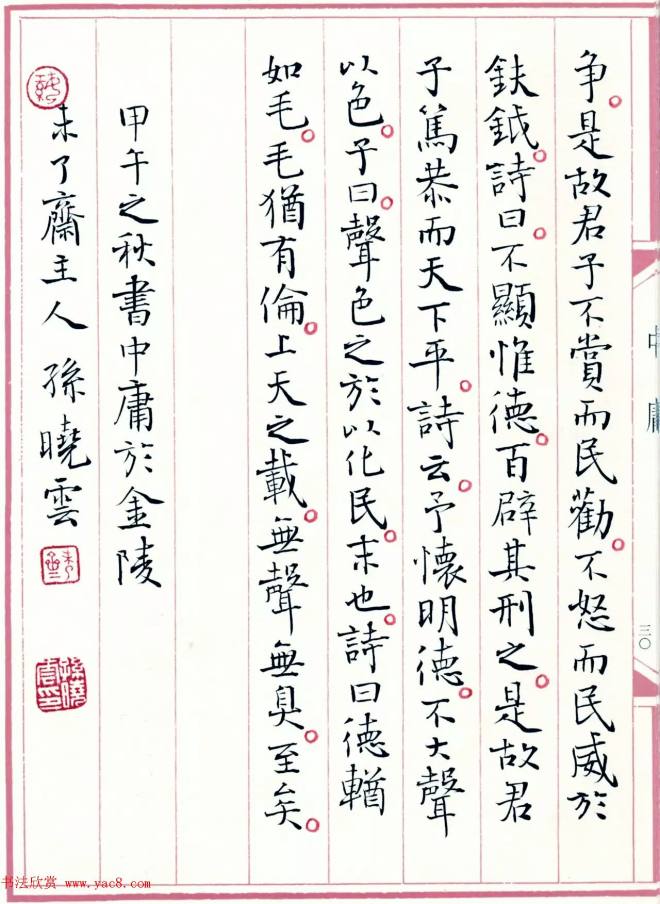 争。是故君子不賞而民勸。不怒而民威於
鈇鉞。詩曰。不顯惟德。百辟其刑之。是故君
子篤恭而天下平。詩云。予懷明德。不大聲
以色。子曰。聲色之於以化民。末也。詩曰德輶
如毛。毛猶有倫。上天之載。無聲無臭。至矣。
甲午之秋書中庸於金陵
未了齋主人孫曉雲
孫曉雲印
中庸
三〇
书法欣赏 www.yac8.com